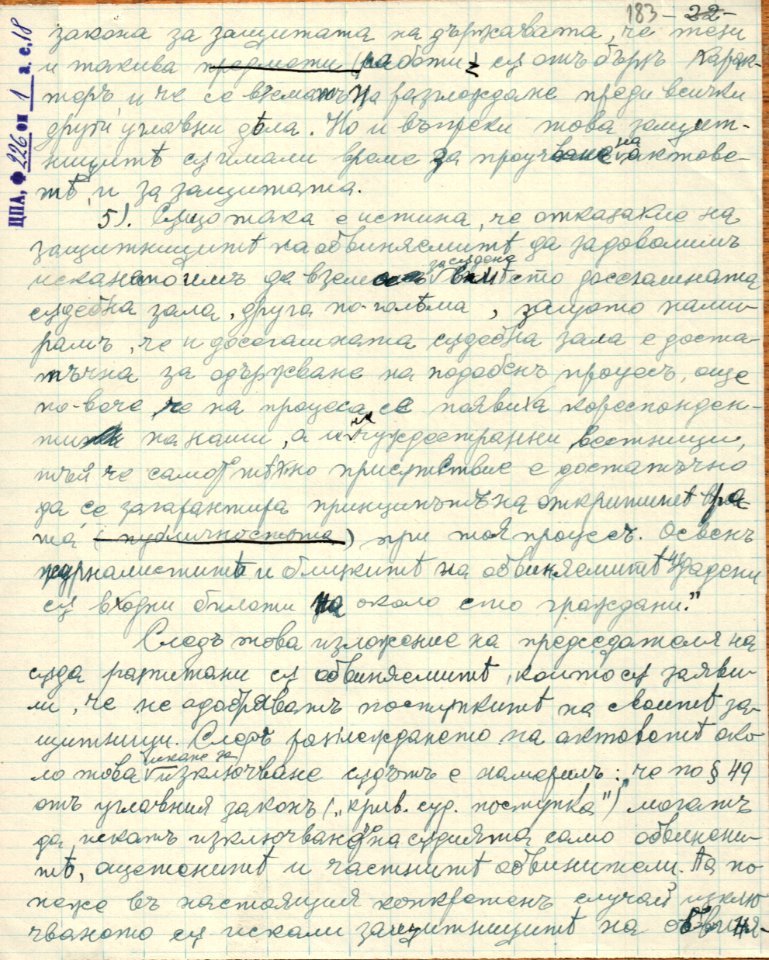 183 - 22 -
ЦПА, ф 226 оп 1 а.е.18
закона за защитата на държавата, че тези
и такива предмети (работи) сѫ отъ бързъ харак-
теръ и че се взематъ на разглеждане преди всички
други углавни дѣла. Но и въпреки това защит-
ницитѣ сѫ имали време за проучване на актове-
тѣ, и за защитата.
5). Сѫщо така е истина, че отказахме на
защитницитѣ на обвиняемитѣ да задоволимъ
искането имъ да вземемъ за съдене вмѣсто досегашната
сѫдебна зала, друга по-голѣма, защото нами-
рамъ, че и досегашната сѫдебна зала е доста-
тъчна за одържване на подобенъ процесъ, още
по-вече, че на процеса се появиха кореспонден-
ти на наши, а и на чуждестранни вестници,
тъй че само тѣхно присѫтствие е достатъчно
да се загарантира принципътъ на откритите вра
та (публичността) при тоя процесъ. Освенъ
журналиститѣ и близкитѣ на обвиняемитѣ, издадени
сѫ входни билети на около сто граждани."
Следъ това изложение на председателя на
сѫда разпитани сѫ обвиняемитѣ, които сѫ заяви-
ли, че не одобряватъ постѫпкитѣ на своитѣ за-
щитници. Следъ разглеждането на актоветѣ око-
ло това искане за изключване сѫдътъ е намерилъ: че по § 49
отъ углавния законъ („крив. суд. поступка") могатъ
да искатъ изключване на сѫдията само обвинени-
тѣ, ощетенитѣ и частнитѣ обвинители. А по
неже въ настоящия конкретенъ случай изклю
чването сѫ искали защитницитѣ на обвиня-